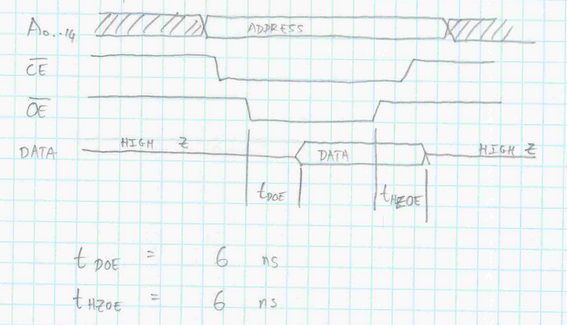 A0..14 ADDRESS
CE
OE
DATA HIGH Z DATA HIGH Z
tDOE tHZOE
tDOE = 6 ns
tHZOE = 6 ns